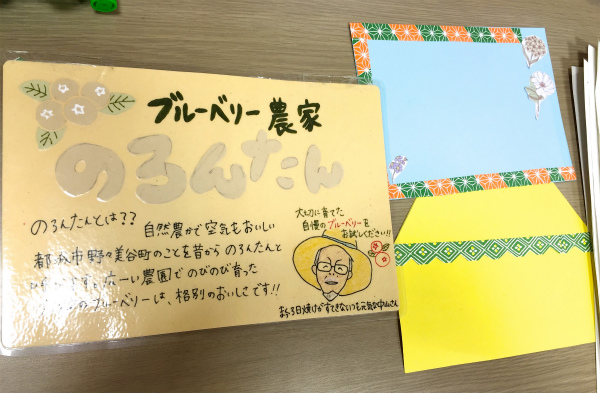 ブルーベリー農家
のろんたん
のろんたんとは?? 自然豊かで空気もおいしい
都 市野々美谷町のことを昔から のろんたんと
広ーい農園でのびのび育った
のブルーベリーは、格別のおいしさです!!
大切に育てた
自慢のブルーベリーを
お試しください!!
日焼けがすてきないつも元気な中山さん